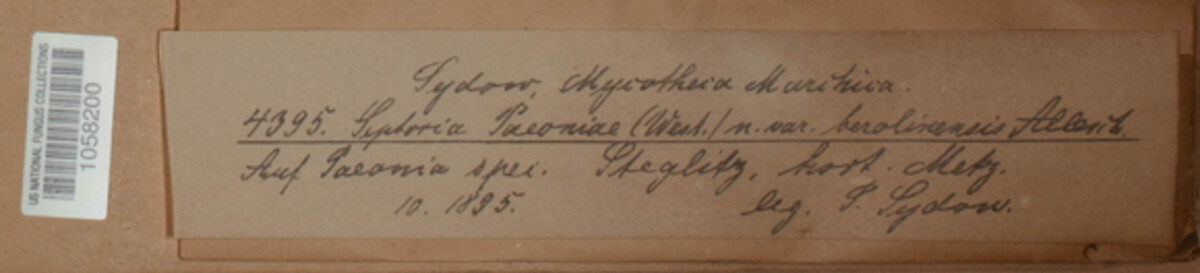 US NATIONAL FUNGUS COLLECTIONS
1058200
Sydow, Mycotheca Marchica.
4395. Septoria Paeoniae (West.) n. var. berolinensis Allesch.
Auf Paeonia spec. Steglitz, hort. Metz.
10. 1895. leg. P. Sydow.